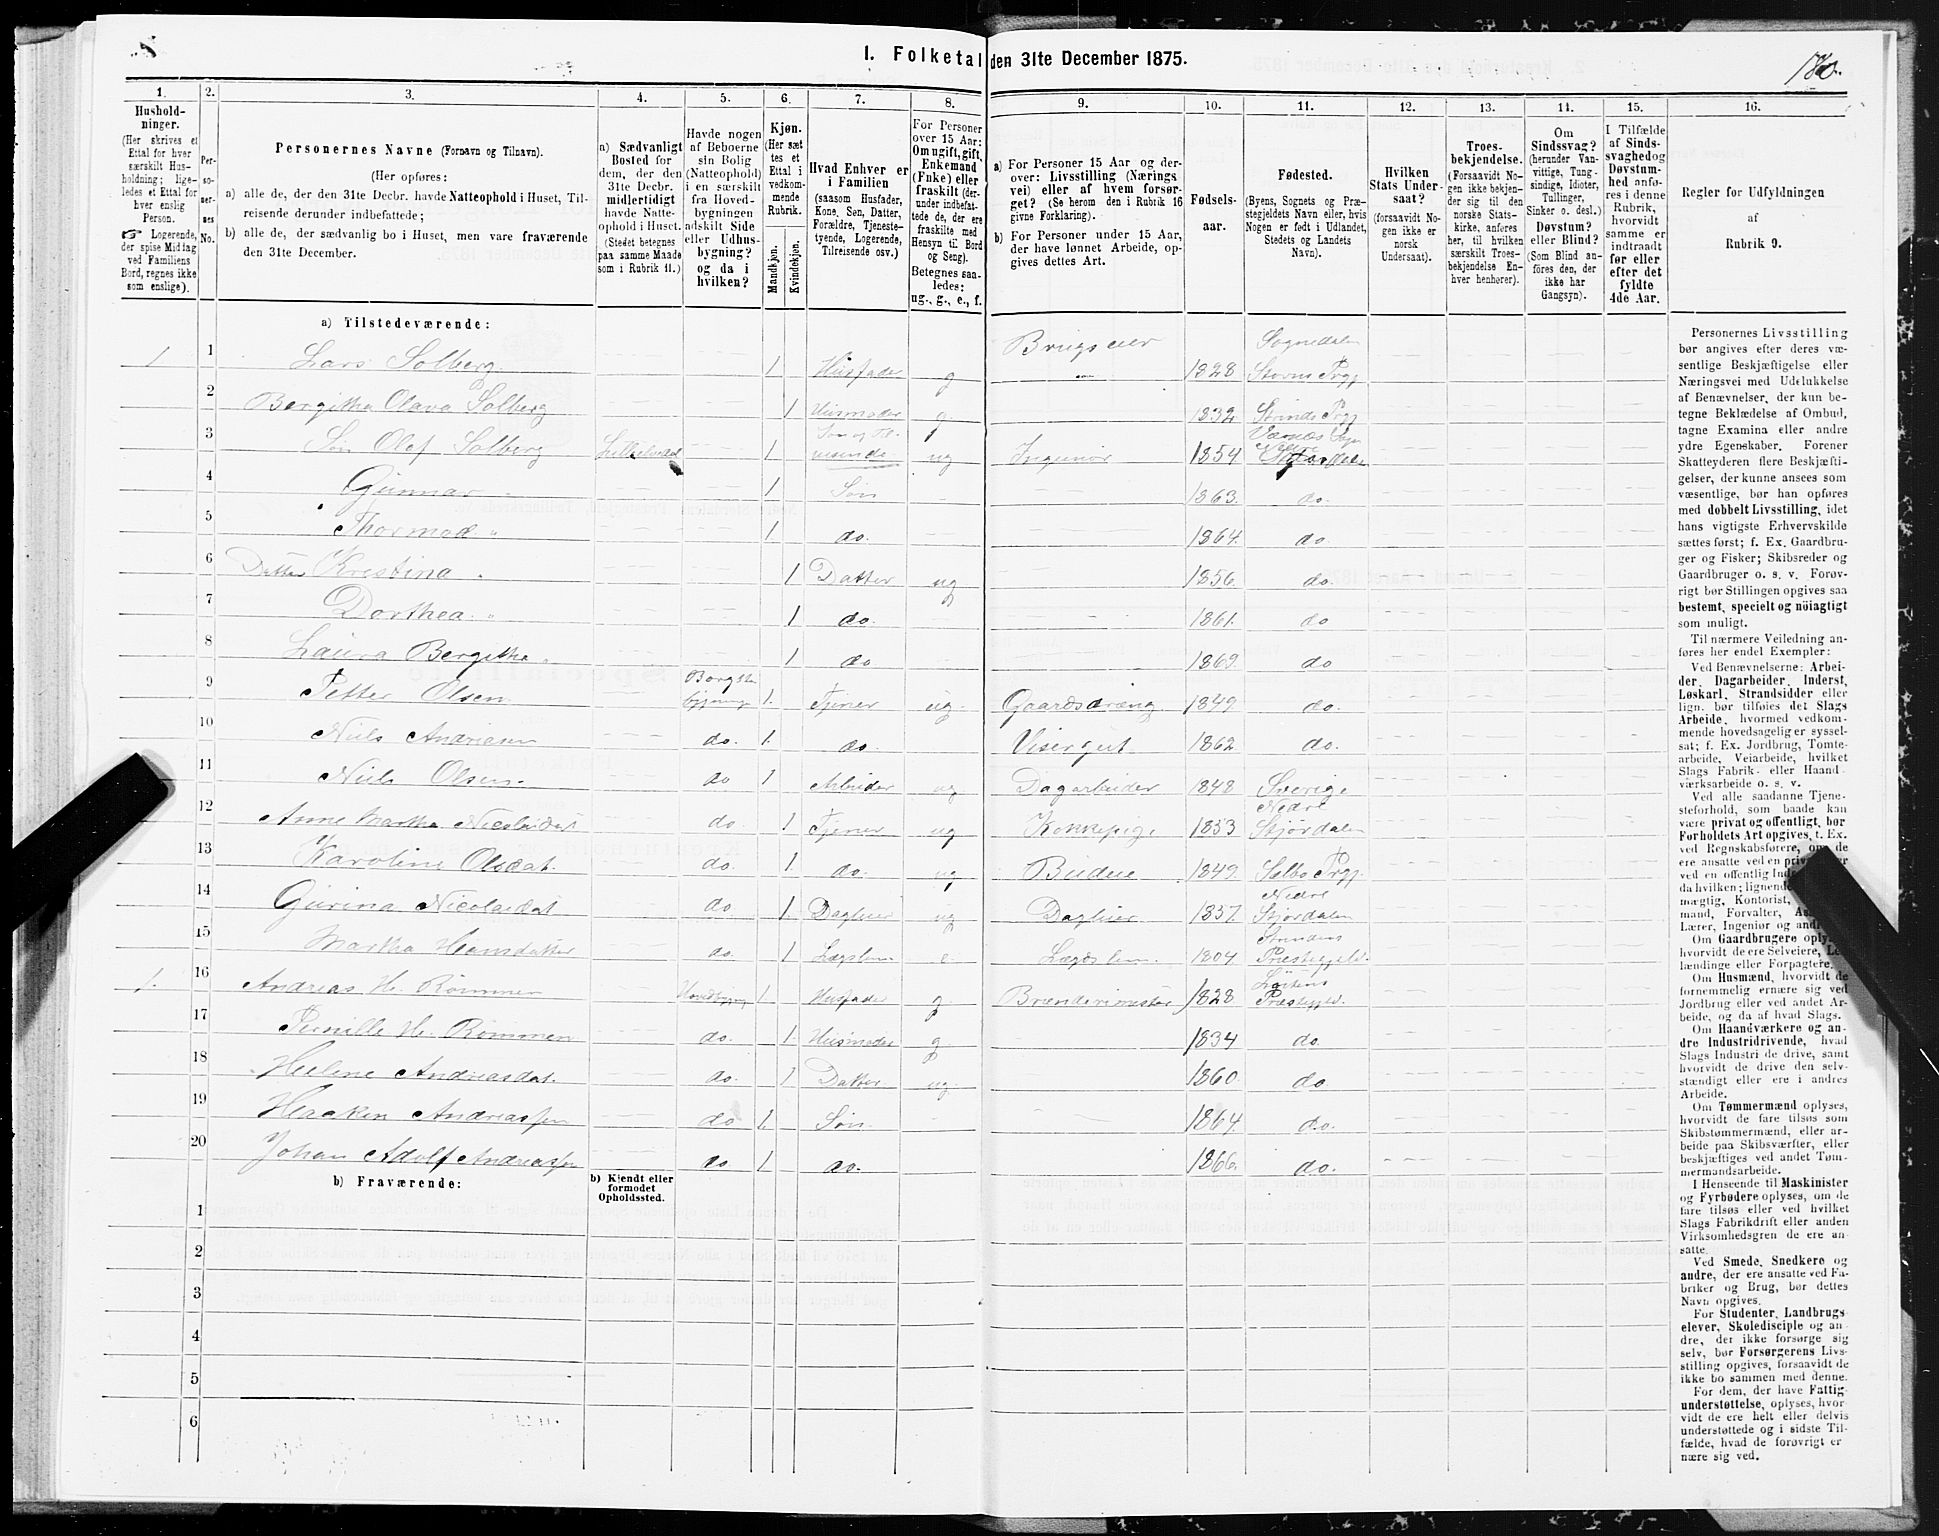 I. Folketal den 31te December 1875.
180.
1.
Hushold-
ninger.
(Her skrives et
Ettal for hver
særskilt Hus-
holdning; lige-
ledes et Ettal for
hver enslig
Person.
☞ Logerende,
der spise Middag
ved Familiens
Bord, regnes ikke
som enslige).
2.
Per-
so-
ner-
nes
No.
3.
Personernes Navne (Fornavn og Tilnavn).
(Her opføres:
a) alle de, der den 31te Decbr. havde Natteophold i Huset, Til-
reisende derunder indbefattede;
b) alle de, der sædvanlig bo i Huset, men vare fraværende
den 31te December.
4.
a) Sædvanligt
Bosted for
dem, der den
31te Decbr.
midlertidigt
havde Natte-
ophold i Huset.
(Stedet betegnes
paa samme Maade
som i Rubrik 11.)
5.
Havde nogen
af Beboerne
sin Bolig
(Natteophold)
i en særskilt
fra Hoved-
bygningen
adskilt Side
eller Udhus-
bygning?
og da i
hvilken?
6.
Kjøn.
(Her sæt
tes et
Ettal i
vedkom-
mende
Rubrik.
Mandkjøn.
Kvindekjøn.
7.
Hvad Enhver er
i Familien
(saasom Husfader,
Kone, Søn, Datter,
Forældre, Tjeneste-
tyende, Logerende,
Tilreisende osv.)
8.
For Personer
over 15 Aar:
Om ugift, gift,
Enkemand
(Enke) eller
fraskilt (der-
under indbefat-
tede de, der ere
fraskilte med
Hensyn til Bord
og Seng).
Betegnes saa-
ledes:
ug., g., e., f.
9.
a) For Personer 15 Aar og der-
over: Livsstilling (Nærings
vei) eller af hvem forsør-
get? (Se herom den i Rubrik 16
givne Forklaring).
b) For Personer under 15 Aar,
der have lønnet Arbeide, op-
gives dettes Art.
10.
Fødsels-
aar.
11.
Fødested.
(Byens, Sognets og Præ-
stegjeldets Navn eller, hvis
Nogen er født i Udlandet,
Stedets og Landets
Navn).
12.
Hvilken
Stats Under-
saat?
(forsaavidt No-
gen ikke er
norsk
Undersaat).
13.
Troes-
bekjendelse.
(Forsaavidt No-
gen ikke bekjen-
der sig til den
norske Stats-
kirke, anføres
her, til hvilken
særskilt Troes-
bekjendelse En-
hver henhører).
14.
Om
Sindssvag?
(herunder Van-
vittige, Tung-
sindige, Idioter,
Tullinger,
Sinker o. desl.)
Døvstum?
eller Blind?
(Som Blind an-
føres den, der
ikke har
Gangsyn).
15.
I Tilfælde
af Sinds-
svaghed og
Døvstum-
hed anfø-
res i denne
Rubrik,
hvorvidt
samme er
indtraadt
før eller
efter det
fyldte
4de Aar.
16.
Regler for Udfyldningen
af
Rubrik 9.
a) Tilstedeværende:
1 1 Lars Solberg 1 Husfader g Brugseier 1828 Sognedalen Storens Prgj
2 Bergitha Olava Solberg 1 Husmoder g. 1832 Strinde Prgj
3 Søn Olaf Solberg 1 ug Ingeniør 1854
4 Gunnar 1 Søn 1863. do.
5 Thormod " 1 do. 1864. do
6 Datter Krestina 1 Datter ug 1856. do
7 Dorthea " 1 do. 1861. do
8 Laura Bergitha " 1 do 1869. do
9 Petter Olsen 1. Tjener ug. Gaardsdræng. 1849. do.
10 Niels Andreasen do. 1. do. Visergut 1862 do.
11 Niels Olsen do 1 Arbeider ug Dagarbeider 1848 Sverige
12 Anne Martha Nicolaidat do 1 Tjener ug Kokkepige 1853 Nedre Stjørdalen
13 Karoline Olsdat. do. 1. do. ug Budeie 1849. Selbo Prgj.
14 Gurina Nicolaidat do 1. Dagleier ug Dagleier 1857. Nedre Stjørdalen
15 Martha Hansdatter do. 1 Lægslem e. Lægdslem. 1804 Strindens Præstegjeld.
1. 16 Andreas H. Rømmen Hovedbygn 1 Husfader g. Brænderimester 1828 Præstegjeld.
17 Pernille H. Rømmen do. 1. Husmoder g. 1834 do.
18 Helene Andreasdat. do. 1 Datter ug. 1860. do
19 Haaken Andreassen do 1. Søn. 1864. do.
20 Johan Adolf Andreassen do 1 do. 1866. do.
b) Fraværende:
b) Kjendt eller
formodet
Opholdssted.
1
2
3
4
5
6
Personernes Livsstilling
bør angives efter deres væ-
sentlige Beskjæftigelse eller
Næringsvei med Udelukkelse
af Benævnelser, der kun be-
tegne Beklædelse af Ombud,
tagne Examina eller andre
ydre Egenskaber. Forener
Skatteyderen flere Beskjæfti-
gelser, der kunne ansees som
væsentlige, bør han opføres
med dobbelt Livsstilling, idet
hans vigtigste Erhvervskilde
sættes først; f. Ex. Gaardbru-
ger og Fisker; Skibsreder og
Gaardbruger o. s. v. Forøv-
rigt bør Stillingen opgives saa
bestemt, specielt og nöiagtigt
som muligt.
Til nærmere Veiledning an-
føres her endel Exempler:
Ved Benævnelserne: Arbei-
der, Dagarbeider, Inderst,
Løskarl, Strandsidder eller
lign. bør tilføies det Slags
Arbeide, hvormed vedkom-
mende hovedsagelig er syssel-
sat; f. Ex. Jordbrug, Tomte-
arbeide, Veiarbeide, hvilket
Slags Fabrik- eller Haand-
værksarbeide o. s. v.
Ved alle saadanne Tjene-
steforhold, som baade kan
være privat og offentligt, bør
Forholdets Art opgives, t. Ex.
ved Regnskabsførere, om de
ere ansatte ved en
ved en offentlig
da hvilken; lignende
mægtig, Kontorist,
mand, Forvalter,
Lærer, Ingeniør og
Om Gaardbrugere
hvorvidt de ere Selveiere,
lændinge eller Forpagtere.
Om Husmænd, hvorvidt de
fornemmelig ernære sig ved
Jordbrug eller ved andet Ar-
beide, og da af hvad Slags.
Om Haandværkere og an-
dre Industridrivende, hvad
Slags Industri de drive, samt
hvorvidt de drive den selv-
stændigt eller ere i andres
Arbeide.
Om Tømmermænd oplyses,
hvorvidt de fare tilsøs som
Skibstømmermænd, eller ar-
beide paa Skibsværfter, eller
beskjæftiges ved andet Tøm-
mermandsarbeide.
I Henseende til Maskinister
og Fyrbødere oplyses, om de
fare tilsøs eller ved hvilket
Slags Fabrikdrift eller anden
Virksomhedsgren de ere an-
satte.
Ved Smede, Snedkere og
andre, der ere ansatte ved Fa-
briker og Brug, bør dettes
Navn opgives.
For Studenter, Landbrugs
elever, Skoledisciple og an-
dre, der ikke forsørge sig
selv, bør Forsørgerens Livs-
stilling opgives, forsaavidt de
ikke bo sammen med denne.
For dem, der have Fattig-
understøttelse, oplyses, hvor-
vidt de ere helt eller delvis
understøttede og i sidste Til-
fælde, hvad de forøvrigt er
nære sig ved.